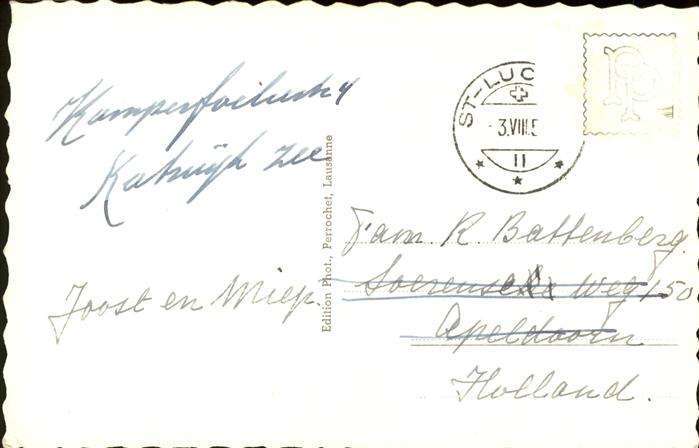 Kamperfoeliestr 4
Katwijk Zee
Joost en Miep.
Edition Phot., Perrochet, Lausanne
ST-LUC
-3.VIII.5
II
Fam R Battenberg.
Soerense Weg 150
Apeldoorn
Holland.